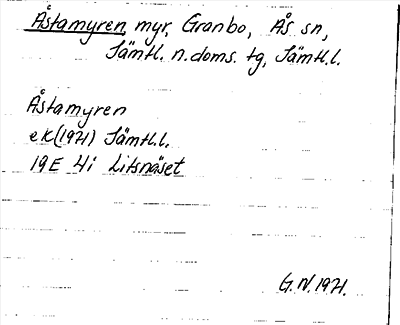 Åstamyren, myr, Granbo, Ås sn,
Jämtl. n. doms. tg, Jämtl.l.
Åstamyren
ek(1971) Jämtl.l.
19E 4i Litsnäset
G.N. 1971.